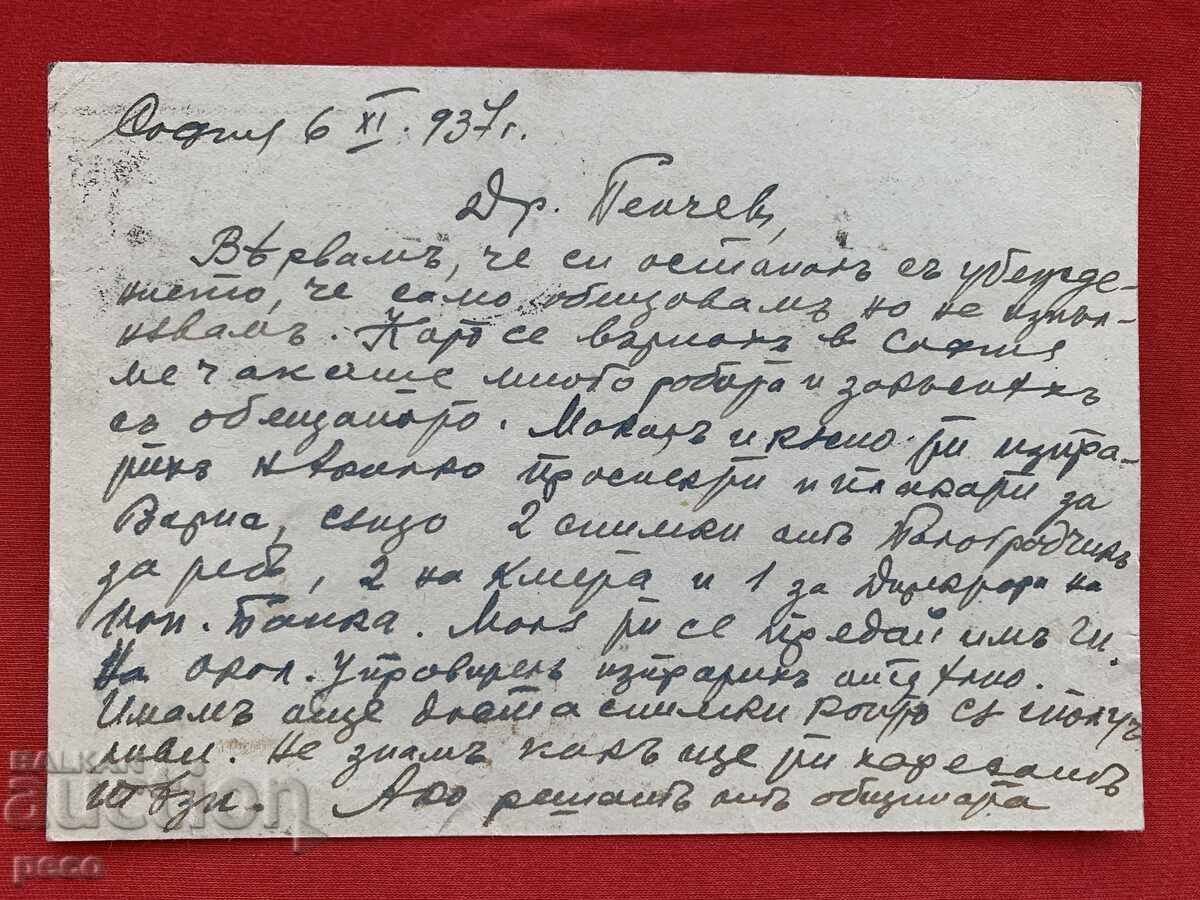 София 6 XI. 937г.
Др. Пенчев,
Вѣрвамъ, че си останалъ съ убежде-
нието, че само обещавамъ но не изпъл-
нявамъ. Като се върнахъ в София
ме чакаше много работа и закъснѣхъ
съ обещаното. Макаръ и късно ти изпра-
тихъ нѣколко проспекти и плакати за
Варна, също 2 снимки отъ Бѣлоградчикъ
за тебъ, 2 на Кмета и 1 за Директора на
поп. Банка. Моля ти се предай имъ ги.
На окол. Управителъ изпратихъ отдѣлно.
Имамъ още доста снимки които сѫ сполуч
ливи. Не знамъ какъ ще ти харесатъ
тѣзи. Ако решатъ отъ общината
BALKAN
auction
peco